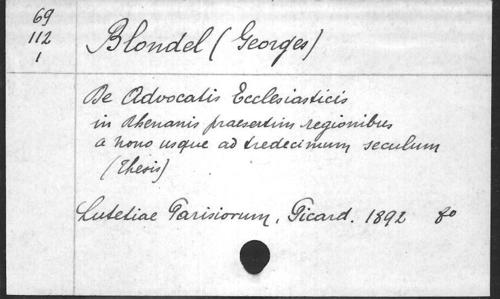 69
112
1
Blondel (Georges)
De Advocatis Ecclesiasticis
in Rhenanis praesertim regionibus
a nono usque ad tredecimum seculum
(Thesis)
Lutetiae Parisiorum, Picard. 1892 8o